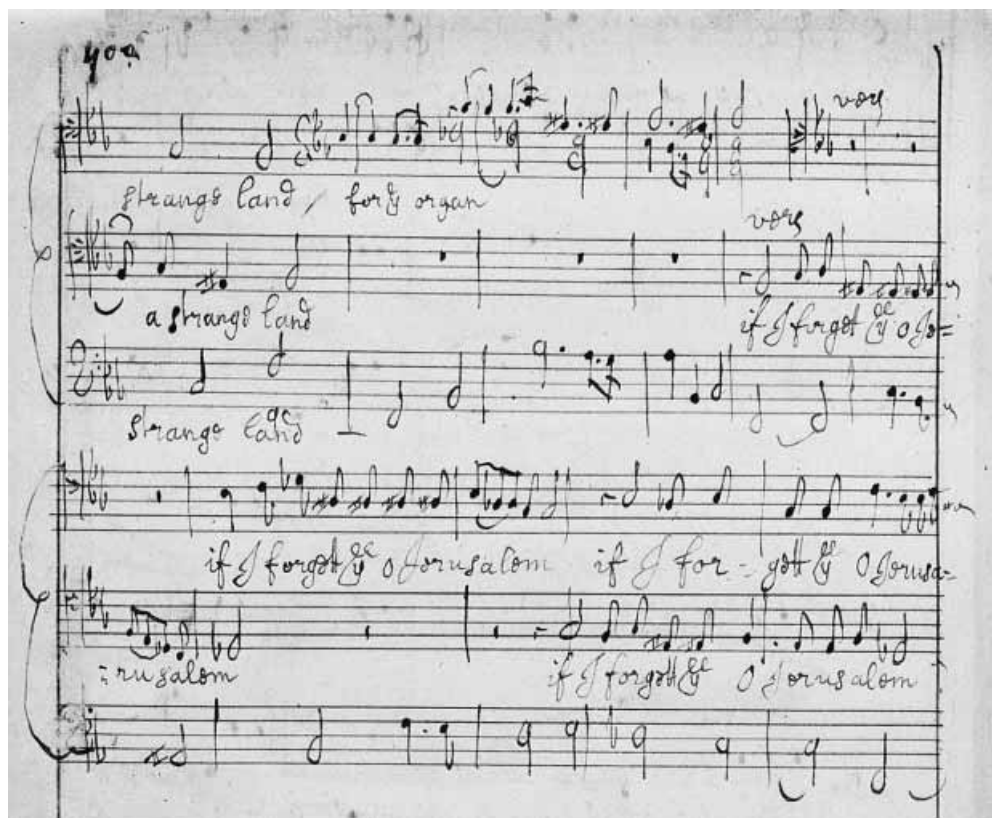 400
vers
strange land / for yͤ organ
vers
a strange land
if I forget yͤ o Je=
strange land
if I forget yͤ o Jerusalem if I for-gett yͤ O Jerusa=
=rusalem if I forgett yͤ O Jerusalem